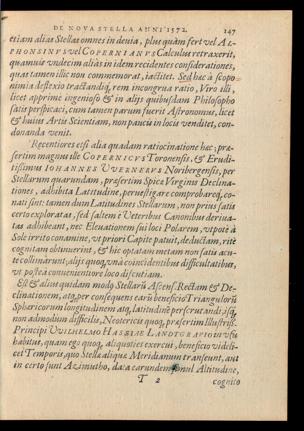 DE NOVA STELLA ANNI 1572. 147
etiam alias Stellas omnes in devia, plus quàm fert vel AL-
PHONSINVS vel COPERNIANVS Calculus retraxerit,
quamvis undecim alias in idem recidentes considerationes,
quas tamen illic non commemorat, iactitet. Sed hac à scopo
nimia deflexio tractandiq, rem incongrua ratio, Viro illi,
licet apprimè ingenioso & in alijs quibusdam Philosopho
satis perspicaci, cum tamen parum fuerit Astronomus, licet
& huius Artis Scientiam, non paucis in locis venditet, con-
donanda venit.
Recentiores etsi alia quadam ratiocinatione hac; præ-
sertim magnus ille COPERNICVS Toronensis, & Erudi-
tissimus IOHANNES VVERNERVS Noribergensis, per
Stellarum quarundam, præsertim Spicæ Virginis Declina-
tiones, adhibita Latitudine, pervestigare comprobareq, co-
nati sint: tamen dum Latitudines Stellarum, non prius satis
certo exploratas, sed saltem è Veteribus Canonibus deriva-
tas adhibeant, nec Elevationem sui loci Polarem, utpote à
Sole irrito conamine, ut priori Capite patuit, deductam, ritè
cognitam obtinuerint, & hic optatam metam non satis acu-
tè collimârunt; alijs quoq, unà coincidentibus difficultatibus,
ut postea convenientiore loco disentiam.
Est & alius quidam modus Stellarū Ascens. Rectam & De-
clinationem, atq, per consequens earū beneficio Triangulorū
Sphæricorum longitudinem atq, latitudinē perscrutandi, isq,
non admodum difficilis, Neotericis quoq, præsertim Illustriss.
Principi VVILHELMO HASSIAE LANDTGRAFIO in usu
habitus, quam ego quoq, aliquoties exercui, beneficio videli-
cet Temporis, quo Stellæ aliquæ Meridianum transeunt, aut
in certo sunt Azimutho, data earundem simul Altitudine,
T 2 cognito